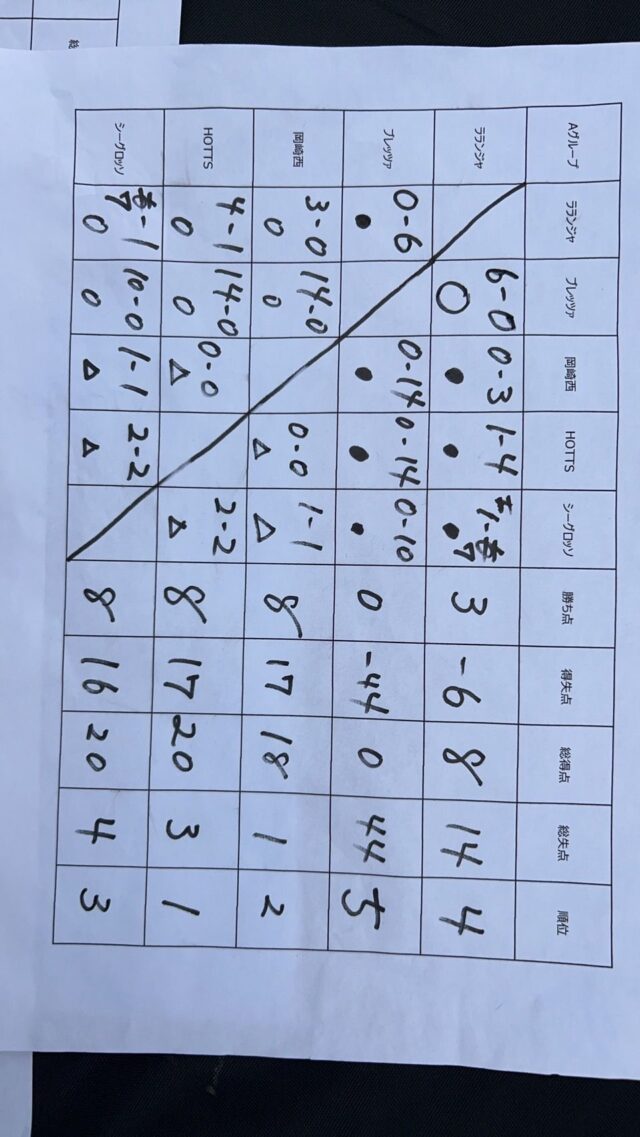 Aグループ ラランジャ ブレッツァ 岡崎西 HOTTS シーグロッソ 勝ち点 得失点 総得点 総失点 順位
ラランジャ 6-0 0-3 1-4 1-7 3 -6 8 14 4
○ ● ● ●
ブレッツァ 0-6 0-14 0-14 0-10 0 -44 0 44 5
● ● ● ●
岡崎西 3-0 14-0 0-0 1-1 8 17 18 1 2
○ ○ △ △
HOTTS 4-1 14-0 0-0 2-2 8 17 20 3 1
○ ○ △ △
シーグロッソ 7-1 10-0 1-1 2-2 8 16 20 4 3
○ ○ △ △